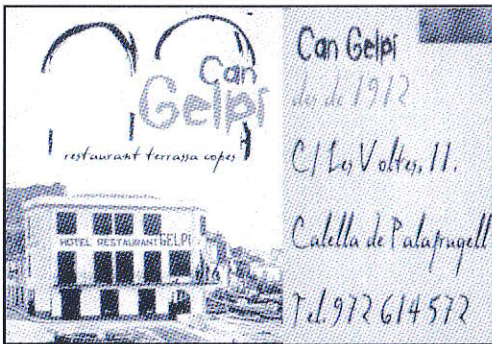 Can
Gelpí
restaurant terrassa copes
HOTEL RESTAURANT GELPÍ
Can Gelpí
des de 1912
C/ Les Voltes, 11.
Calella de Palafrugell
Tel. 972 614 572